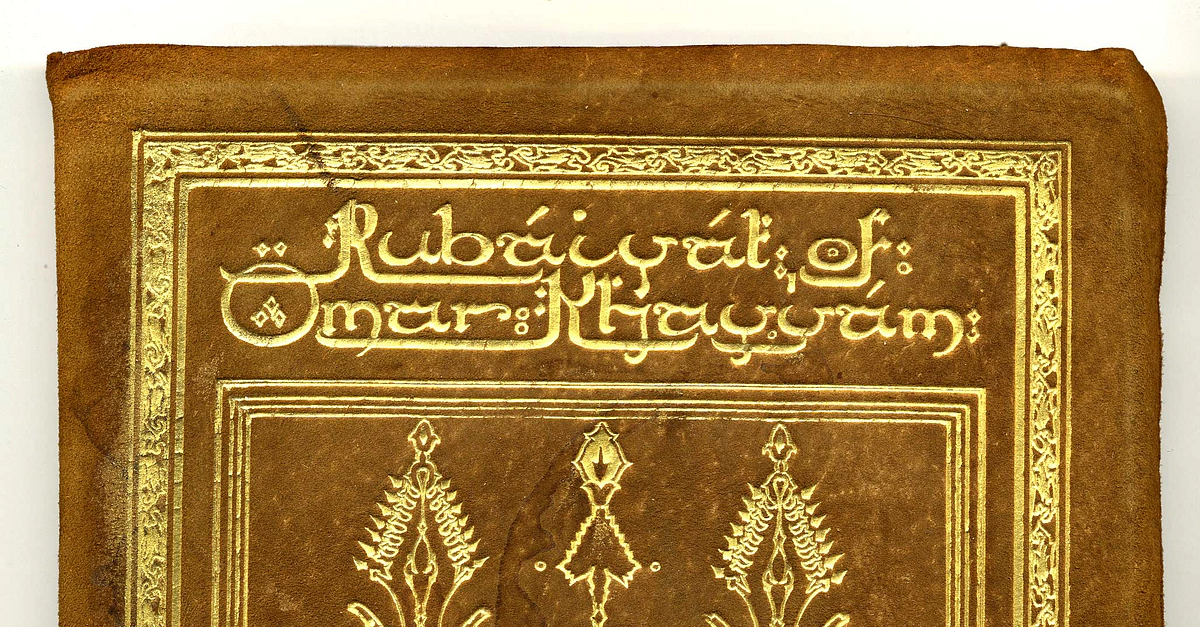 Rubáiyát: of:
Omar: Khayyám: